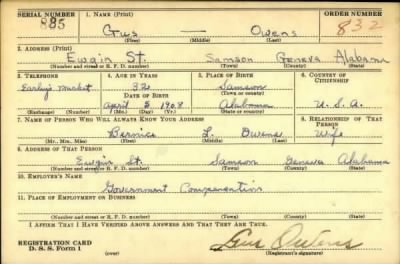 SERIAL NUMBER 1. NAME (Print) ORDER NUMBER
885 Gus — Owens 832
(First) (Middle) (Last)
2. ADDRESS (Print)
Ewgin St. Samson Geneva Alabama
(Number and street or R. F. D. number) (Town) (County) (State)
3. TELEPHONE 4. AGE IN YEARS 5. PLACE OF BIRTH 6. COUNTRY OF CITIZENSHIP
Early's Market 32 Samson
DATE OF BIRTH (Town or county)
April 5 1908 Alabama U. S. A.
(Exchange) (Number) (Mo.) (Day) (Yr.) (State or country)
7. NAME OF PERSON WHO WILL ALWAYS KNOW YOUR ADDRESS 8. RELATIONSHIP OF THAT PERSON
Bernice L. Owens Wife
(Mr., Mrs., Miss) (First) (Middle) (Last)
9. ADDRESS OF THAT PERSON
Ewgin St. Samson Geneva Alabama
(Number and street or R. F. D. number) (Town) (County) (State)
10. EMPLOYER'S NAME
Government Compensation
11. PLACE OF EMPLOYMENT OR BUSINESS
(Number and street or R. F. D. number) (Town) (County) (State)
I AFFIRM THAT I HAVE VERIFIED ABOVE ANSWERS AND THAT THEY ARE TRUE.
REGISTRATION CARD
D. S. S. Form 1 (over) Gus Owens
(Registrant's signature)